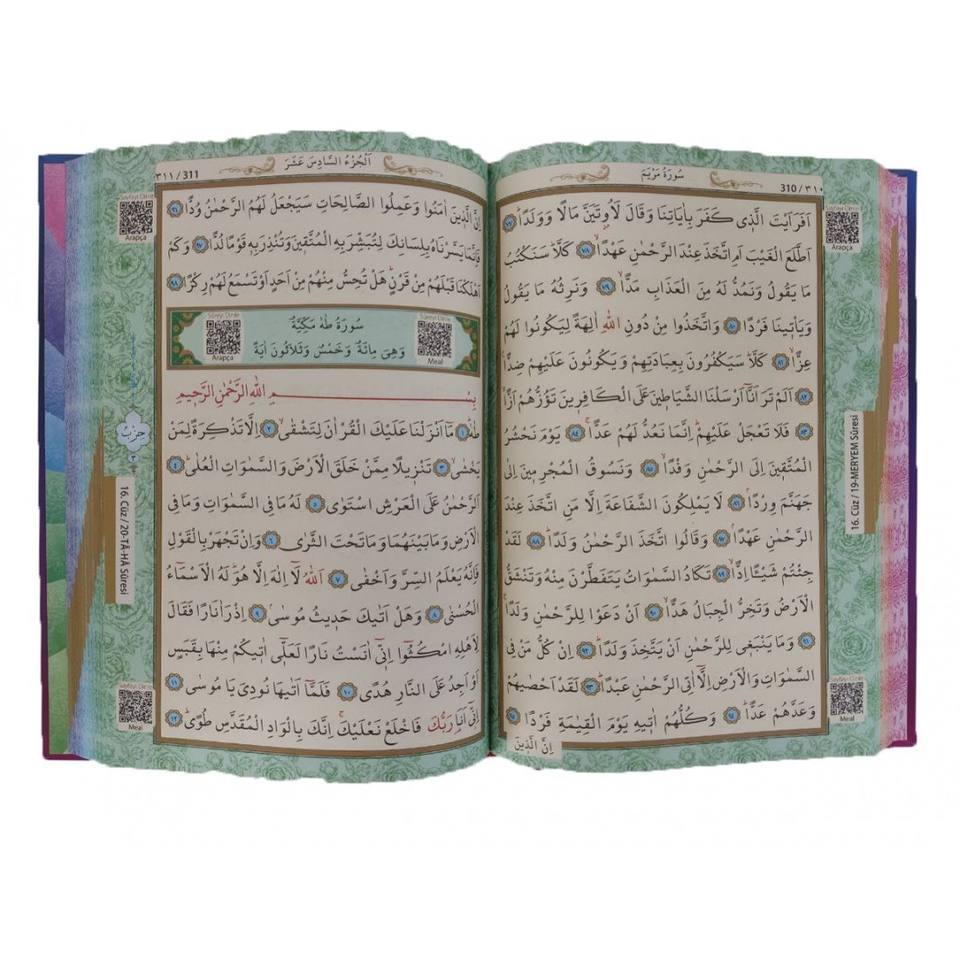 سُورَةُ مَرْيَمَ
310 / ٣١٠
اَفَرَاَيْتَ الَّذٖي كَفَرَ بِاٰيَاتِنَا وَقَالَ لَاُوتَيَنَّ مَالًا وَوَلَدًاۜ ٧٧
اَطَّلَعَ الْغَيْبَ اَمِ اتَّخَذَ عِنْدَ الرَّحْمٰنِ عَهْدًاۙ ٧٨ كَلَّاۜ سَنَكْتُبُ
مَا يَقُولُ وَنَمُدُّ لَهُ مِنَ الْعَذَابِ مَدًّاۙ ٧٩ وَنَرِثُهُ مَا يَقُولُ
وَيَأْتٖينَا فَرْدًا ٨٠ وَاتَّخَذُوا مِنْ دُونِ اللّٰهِ اٰلِهَةً لِيَكُونُوا لَهُمْ
عِزًّاۙ ٨١ كَلَّاۜ سَيَكْفُرُونَ بِعِبَادَتِهِمْ وَيَكُونُونَ عَلَيْهِمْ ضِدًّا۟
٨٢ اَلَمْ تَرَ اَنَّٓا اَرْسَلْنَا الشَّيَاطٖينَ عَلَى الْكَافِرٖينَ تَؤُزُّهُمْ اَزًّاۙ
٨٣ فَلَا تَعْجَلْ عَلَيْهِمْۜ اِنَّمَا نَعُدُّ لَهُمْ عَدًّاۚ ٨٤ يَوْمَ نَحْشُرُ
الْمُتَّقٖينَ اِلَى الرَّحْمٰنِ وَفْدًاۙ ٨٥ وَنَسُوقُ الْمُجْرِمٖينَ اِلٰى
جَهَنَّمَ وِرْدًاۢ ٨٦ لَا يَمْلِكُونَ الشَّفَاعَةَ اِلَّا مَنِ اتَّخَذَ عِنْدَ
الرَّحْمٰنِ عَهْدًاۢ ٨٧ وَقَالُوا اتَّخَذَ الرَّحْمٰنُ وَلَدًاۜ ٨٨ لَقَدْ
جِئْتُمْ شَيْـًٔا اِدًّاۙ ٨٩ تَكَادُ السَّمٰوَاتُ يَتَفَطَّرْنَ مِنْهُ وَتَنْشَقُّ
الْاَرْضُ وَتَخِرُّ الْجِبَالُ هَدًّاۙ ٩٠ اَنْ دَعَوْا لِلرَّحْمٰنِ وَلَدًاۚ
٩١ وَمَا يَنْبَغٖي لِلرَّحْمٰنِ اَنْ يَتَّخِذَ وَلَدًاۜ ٩٢ اِنْ كُلُّ مَنْ فِي
السَّمٰوَاتِ وَالْاَرْضِ اِلَّٓا اٰتِي الرَّحْمٰنِ عَبْدًاۜ ٩٣ لَقَدْ اَحْصٰيهُمْ
وَعَدَّهُمْ عَدًّاۜ ٩٤ وَكُلُّهُمْ اٰتٖيهِ يَوْمَ الْقِيٰمَةِ فَرْدًا ٩٥
اِنَّ الَّذٖينَ
Sayfayı Dinle
Arapça
16. Cüz / 19-MERYEM Sûresi
Sayfayı Dinle
Meal
اَلْجُزْءُ السَّادِسَ عَشَرَ
٣١١ / 311
اِنَّ الَّذٖينَ اٰمَنُوا وَعَمِلُوا الصَّالِحَاتِ سَيَجْعَلُ لَهُمُ الرَّحْمٰنُ وُدًّا ٩٦
فَاِنَّمَا يَسَّرْنَاهُ بِلِسَانِكَ لِتُبَشِّرَ بِهِ الْمُتَّقٖينَ وَتُنْذِرَ بِهٖ قَوْمًا لُدًّا ٩٧ وَكَمْ
اَهْلَكْنَا قَبْلَهُمْ مِنْ قَرْنٍۜ هَلْ تُحِسُّ مِنْهُمْ مِنْ اَحَدٍ اَوْ تَسْمَعُ لَهُمْ رِكْزًا ٩٨
سُورَةُ طٰهٰ مَكِّيَّةٌ
وَهِيَ مِائَةٌ وَخَمْسٌ وَثَلَاثُونَ اٰيَةً
Sûreyi Dinle
Arapça
Sûreyi Dinle
Meal
بِسْمِ اللّٰهِ الرَّحْمٰنِ الرَّحٖيمِ
طٰهٰۜ ١ مَٓا اَنْزَلْنَا عَلَيْكَ الْقُرْاٰنَ لِتَشْقٰىۙ ٢ اِلَّا تَذْكِرَةً لِمَنْ
يَخْشٰىۙ ٣ تَنْزٖيلًا مِمَّنْ خَلَقَ الْاَرْضَ وَالسَّمٰوَاتِ الْعُلٰىۜ ٤
اَلرَّحْمٰنُ عَلَى الْعَرْشِ اسْتَوٰى ٥ لَهُ مَا فِي السَّمٰوَاتِ وَمَا فِي
الْاَرْضِ وَمَا بَيْنَهُمَا وَمَا تَحْتَ الثَّرٰى ٦ وَاِنْ تَجْهَرْ بِالْقَوْلِ
فَاِنَّهُ يَعْلَمُ السِّرَّ وَاَخْفٰى ٧ اَللّٰهُ لَٓا اِلٰهَ اِلَّا هُوَۜ لَهُ الْاَسْمَٓاءُ
الْحُسْنٰى ٨ وَهَلْ اَتٰيكَ حَدٖيثُ مُوسٰىۢ ٩ اِذْ رَاٰ نَارًا فَقَالَ
لِاَهْلِهِ امْكُثُٓوا اِنّٖٓي اٰنَسْتُ نَارًا لَعَلّٖٓي اٰتٖيكُمْ مِنْهَا بِقَبَسٍ
اَوْ اَجِدُ عَلَى النَّارِ هُدًى ١٠ فَلَمَّٓا اَتٰيهَا نُودِيَ يَا مُوسٰى ١١
اِنّٖٓي اَنَا۬ رَبُّكَ فَاخْلَعْ نَعْلَيْكَۚ اِنَّكَ بِالْوَادِ الْمُقَدَّسِ طُوًىۜ ١٢
Sayfayı Dinle
Arapça
حِزْبٌ
16. Cüz / 20-TÂ-HÂ Sûresi
Sayfayı Dinle
Meal